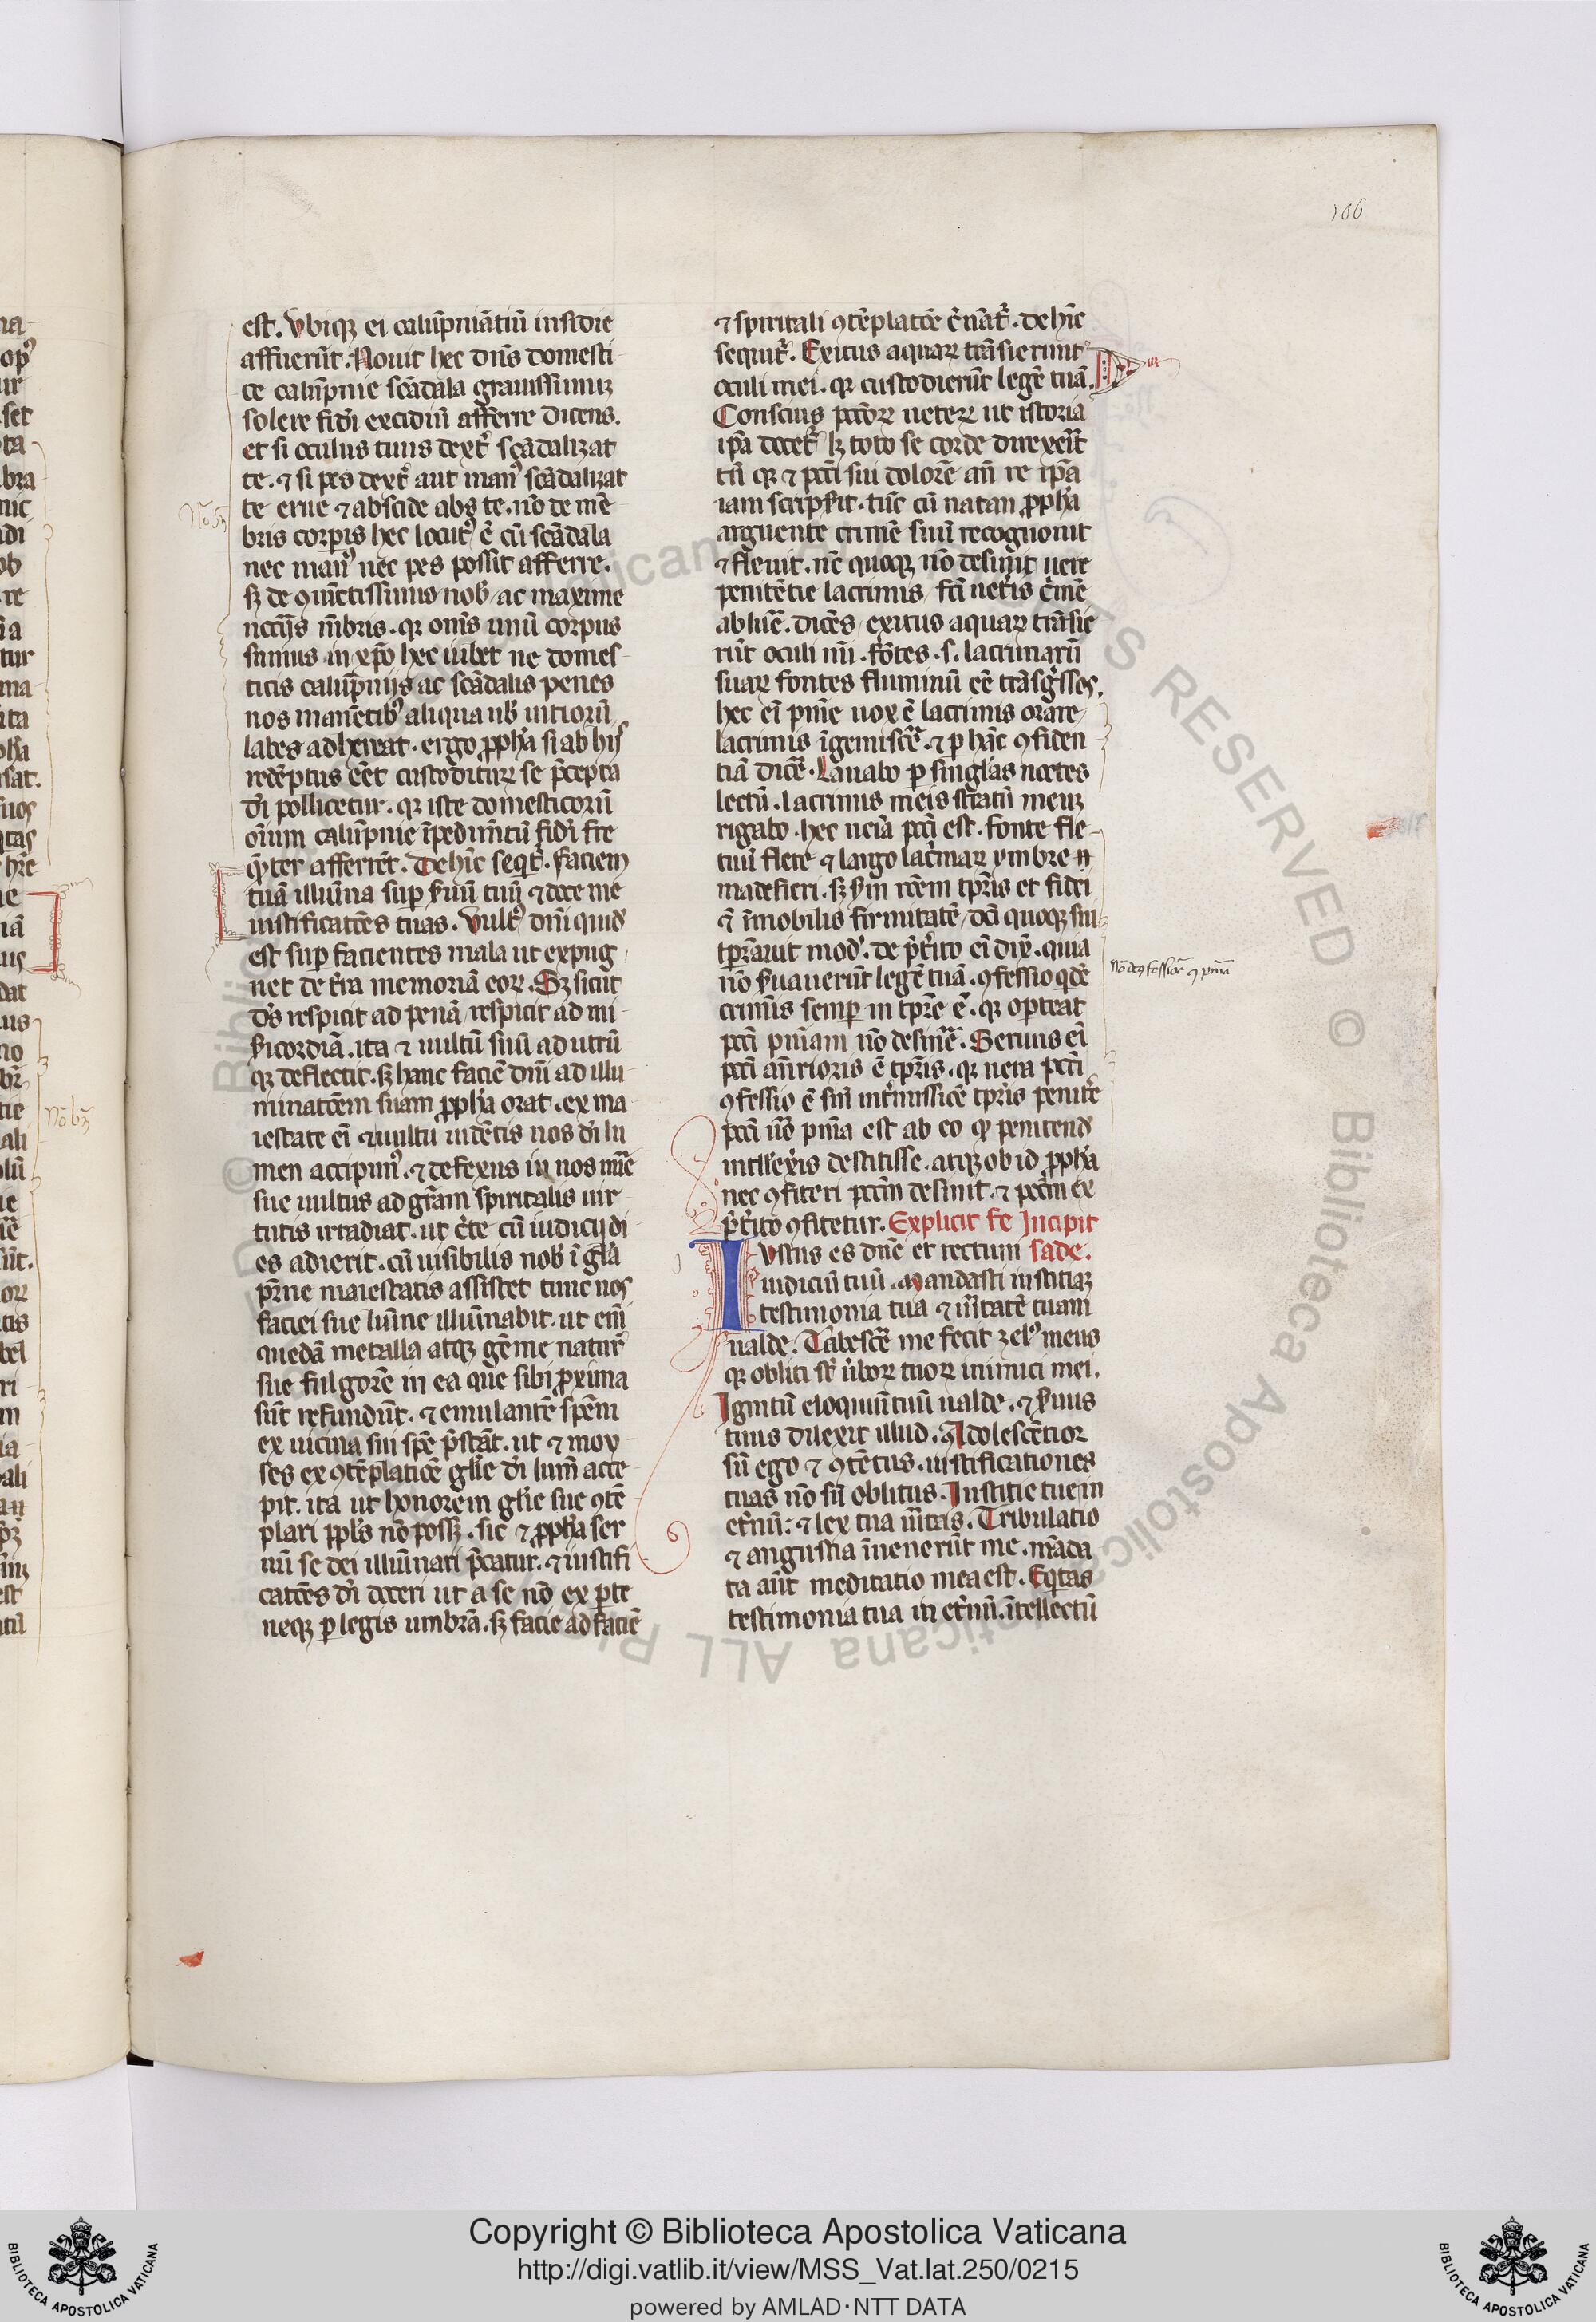 106
est. vbiqꝫ ei calūpniātiū insidie
affuerūt. Nouit hec dn̄s domesti
ce calūpnie scādala grauissimuꝫ
solere fidei excidiū afferre dicens.
et si oculus tuus dext̉ scādalizat
te. ⁊ si pes dext̉ aut manꝰ scādalizat
te erue ⁊ abscide abs te. nō de mē
bris corꝑis hec locutꝰ ē cū scādala
nec manꝰ nec pes possit afferre.
sꝫ de ꝯiūctissimis nob̉ ac maxime
nccijs mēbris. qꝛ om̄s unū corpus
sumus in xp̄o hec iubet ne domes
ticis calūpnijs ac scādalis penes
nos manētibꝰ aliqua nb̉ uitiorū
labes adhereat. ergo ꝓph̄a si ab hijs
redēptus eēt custoditurꝰ se p̄cepta
dei pollicetur. qꝛ iste domesticorū
oīum calūpnie īpedimētū fidei fre
qūter afferrēt. Dehīc seqt̉. faciem
tuā illuīna suꝑ ẜuū tuū ⁊ doce me
iustificatōes tuas. Vultꝰ dn̄i quid̉
est suꝑ facientes mala ut expug
net de t̉ra memoriā eoꝝ. Sꝫ sicut
ds̄ respicit ad penā respicit ad mi
ẜicordiā. ita ⁊ uultū suū ad utrū
qꝫ deflectit. sꝫ hanc faciē dn̄i ad illu
minatōem suam ꝓph̄a orat. ex ma
iestate eī ⁊ uultu uidētis nos dei lu
men accipimꝰ. ⁊ defexus in nos lum̄e
sue uultus ad gr̄am spiritalis uir
tutis irradiat. ut c̉te cū iudicij di
es adierit. cū uisibilis nob̉ ī gl̄ia
pr̄ne maiestatis assistet tunc nos
faciei sue luīne illuīnabit. ut enī
quedā metalla atqꝫ gēme natur̄
sue fulgorē in ea que sibi ꝓxima
sūt refundūt. ⁊ emulantē spēm
ex uicina sui spē p̄stāt. ut ⁊ moy
ses ex ꝯtēplatiōe gl̄ie dei lum̄ acce
pit. ita ut honorem gl̄ie sue ꝯtē
plari ppl̄s nō possꝫ. sic ⁊ ꝓph̄a ser
uū se dei illuīnari p̄catur. ⁊ iustifi
catōes dei doceri ut a se nō ex ꝑte
neqꝫ ꝑ legis umbrā. sꝫ facie ad faciē
⁊ spiritali ꝯtēplatōe c̉nāt̉. de hīc
sequit̉. Exitus aquaꝝ trāsierunt
oculi mei. qꝛ custodierūt legē tuā.
Conscius pcc̄oꝝ ueteꝝ ut istoria
ip̄a docet̉ lꝫ toto se corde direxeīt
tn̄ qꝛ ⁊ pcc̄i sui dolorē an̄ re ip̄a
iam scripẜit. tūc cū natan ꝓph̄a
arguente crimē suū recognouit
⁊ fleuit. nc̄ quoqꝫ nō desinit uere
penitētie lacrimis fc̄i uet̉is c̉mē
abluē. dicēs exitus aquaꝝ trāsie
rūt oculi mi. fōtes .s. lacrimarū
suaꝝ fontes fluminū eē trāsg̉ssos.
hec eī pn̄ie uox ē lacrimis orare
lacrimis īgemiscē. ⁊ ꝑ hāc ꝯfiden
tiā dicē. Lauabo ꝑ singl̄as noctes
lectū. lacrimis meis stratū meuꝫ
rigabo. hec uen̄ia pcc̄i est. fonte fle
tuū flere ⁊ largo lac̉maꝝ ymbre
madefieri. sꝫ ẜm rōem tꝑis et fidei
ē īmobilis firmitatē dc̄i quoqꝫ sui
tꝑauit modū. de p̄t̉ito eī dix̄. quia
nō ẜuauerūt legē tuā. ꝯfessio qdē
criminis semꝑ in tꝑe ē. qꝛ oꝑteat
pcc̄i pn̄iam nō desinē. Serius eī
pcc̄i an̄rioris ē tꝑis. qꝛ uera pcc̄i
ꝯfessio ē sin̄ int̉missiōe tꝑis penitē
pcc̄i ūo pn̄ia est ab eo qd̉ penitend̉
intll̄exis destitisse. atqꝫ ob id ꝓph̄a
nec ꝯfiteri pcc̄m desinit. ⁊ pcc̄m ex
p̄t̉ito ꝯfitetur. Explicit fe Incipit
IVstus es dn̄e et rectum sade.
iudiciū tuū. Mandasti iustitiaꝫ
testimonia tua ⁊ uītatē tuam
ualde. Tabescē me fecit zelꝰ meus
qꝛ obliti st̄ ūboꝝ tuoꝝ inimici mei.
Ignitū eloquiū tuū ualde. ⁊ ẜuus
tuus dilexit illud. Adolescētior
sū ego ⁊ ꝯtētus. iustificationes
tuas nō sū oblitus. Iustitie tue in
et̉nū: ⁊ lex tua ūitas. Tribulatio
⁊ angustia īuenerūt me. māda
ta aūt meditatio mea est. Eqͥtas
testimonia tua in et̉nū. ītellectū
Nō de ꝯfessiōe ⁊ pn̄ia
Copyright © Biblioteca Apostolica Vaticana
http://digi.vatlib.it/view/MSS_Vat.lat.250/0215
powered by AMLAD·NTT DATA
BIBLIOTECA APOSTOLICA VATICANA
BIBLIOTECA APOSTOLICA VATICANA